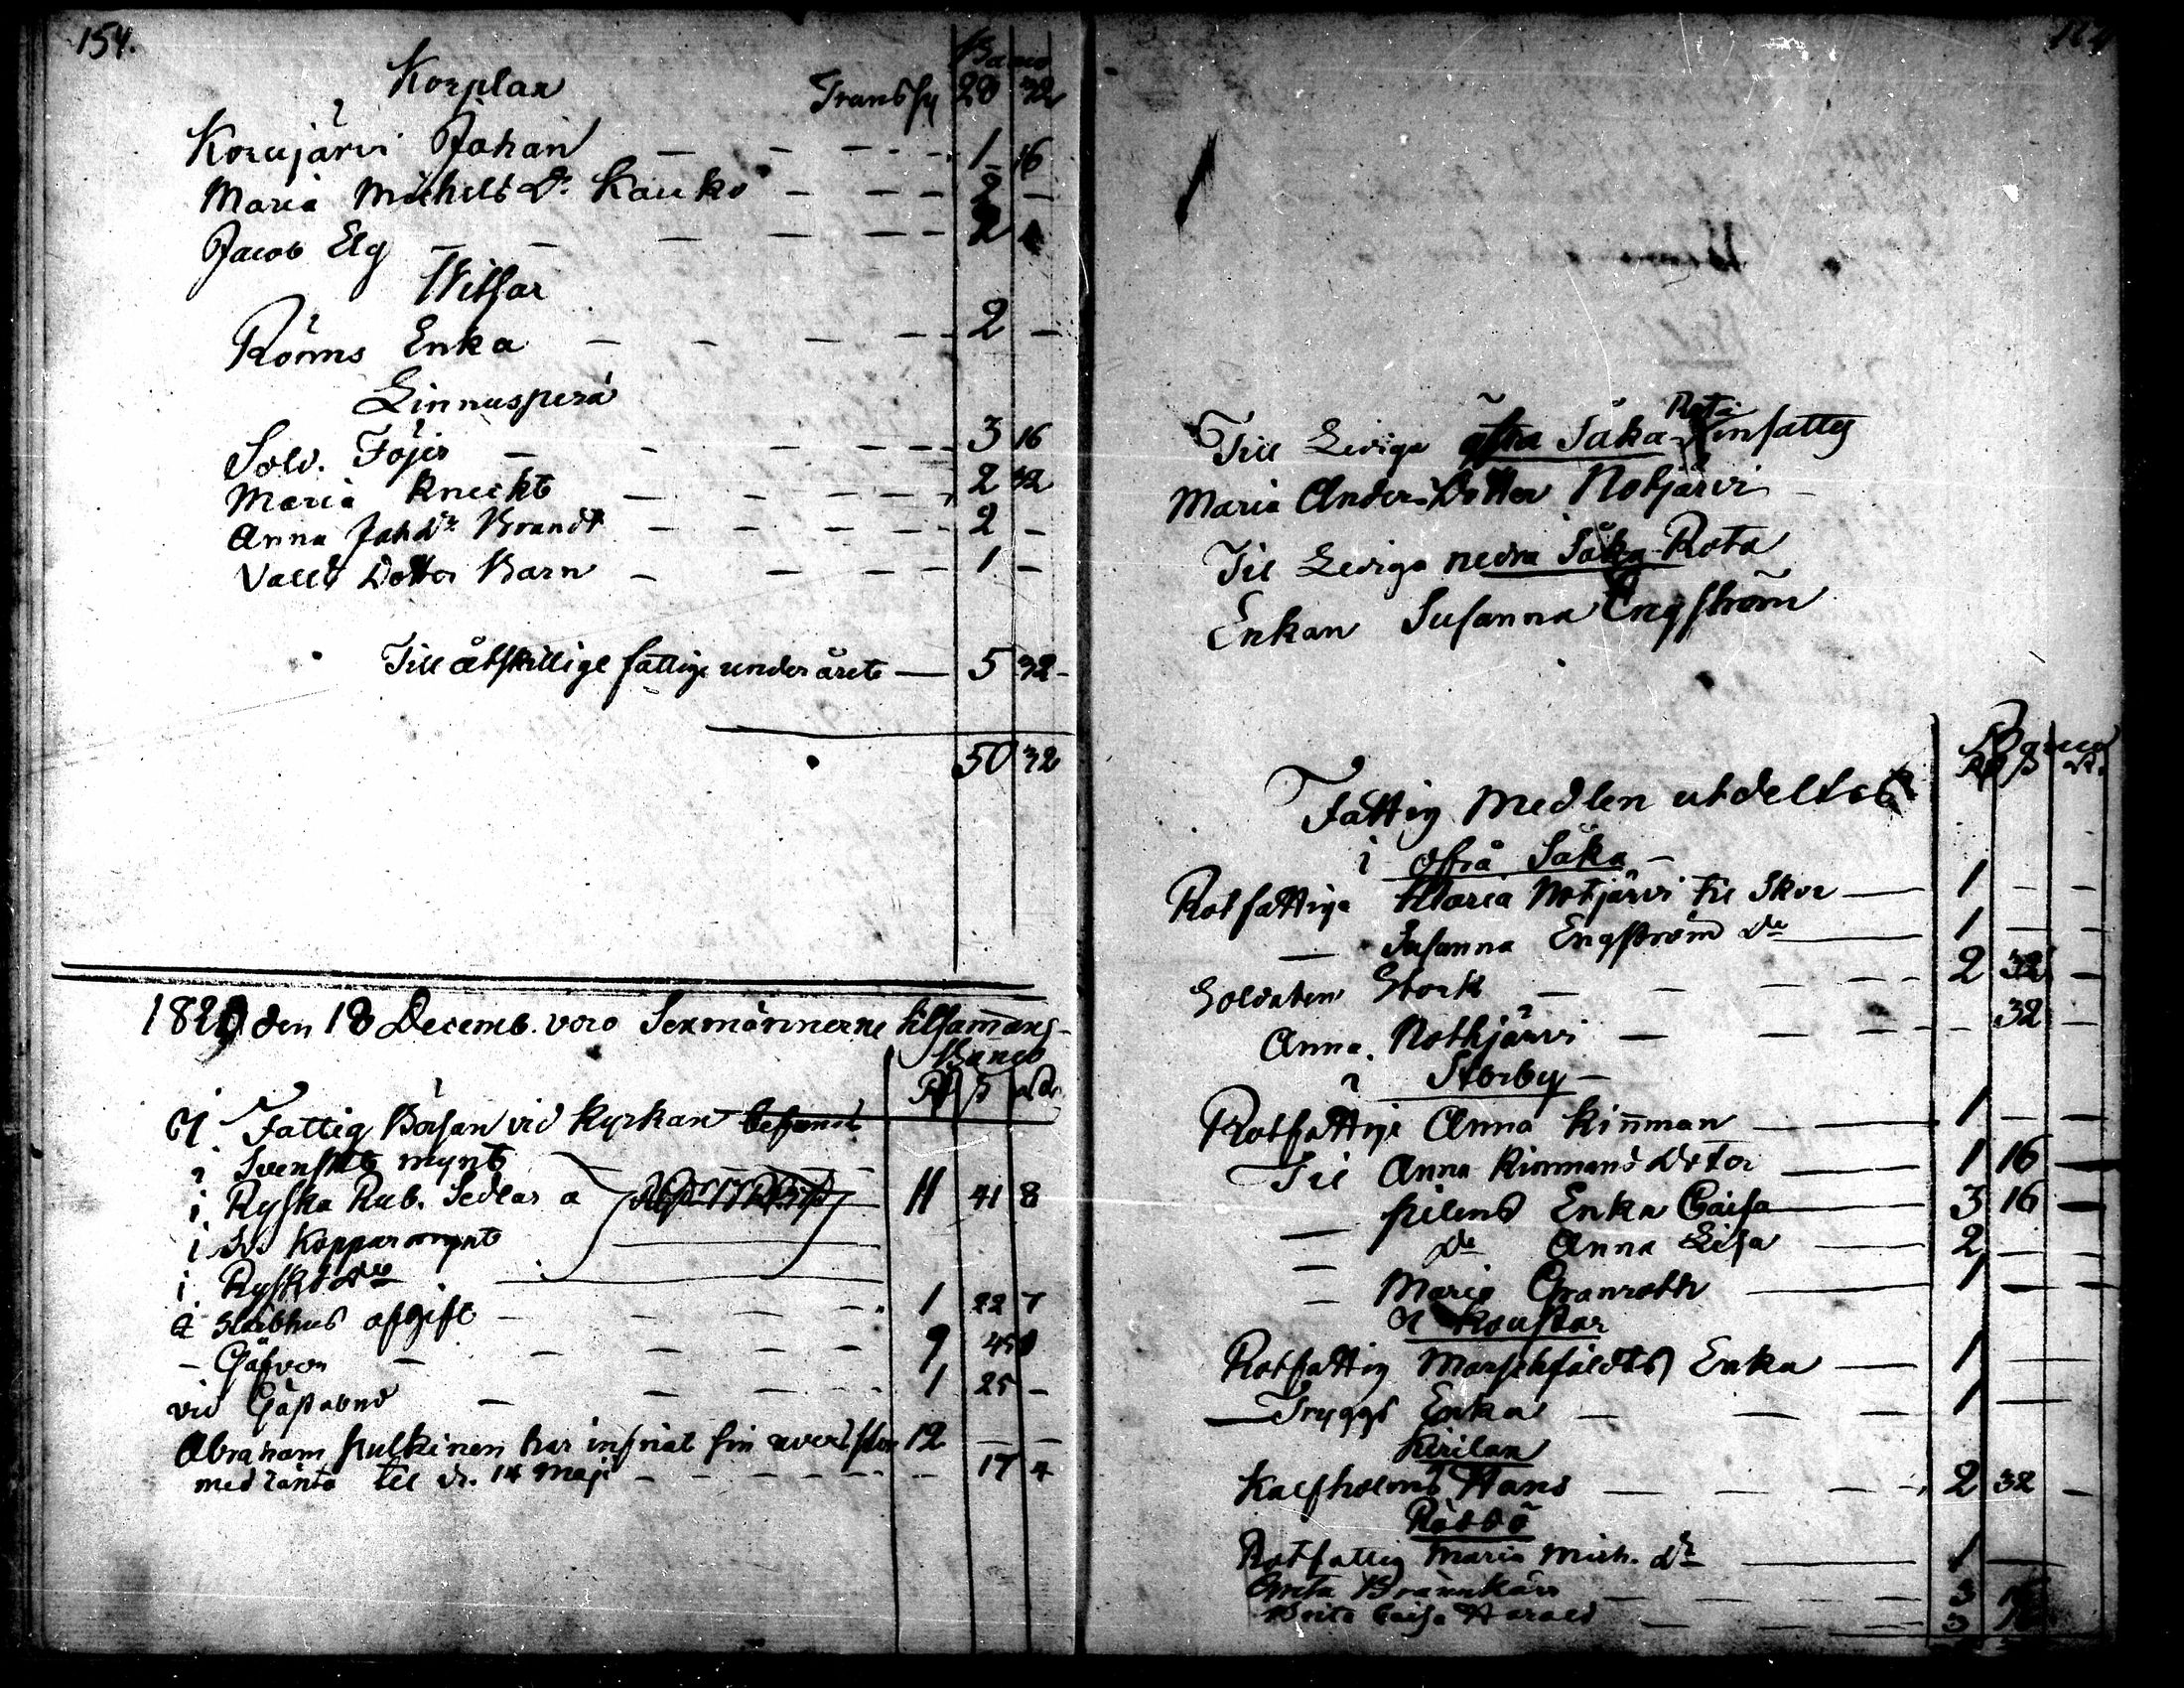 154.
Banco
Korplax Transp 28 32
Korujärvi Johan — — — 1 16
Maria Michels Dr Kauko — — — 2 —
Jacob Elg — — — — — 2
Witsar
Rönns Enka — — — — 2 —
Linnusperä
Sold. Töjer — — — — 3 16
Maria Kneckt — — — — 2 32
Anna Joh Dr Brandt — — — — 2 —
Valls Dotter Barn — — — — 1 —
Till åtskillige fattige under året — 5 32 -
50 32
1829 den 18 Decemb. voro Sexmännerne tilsamans-
Banco
I Fattig Börsan vid Kyrkan befanst
i Svenskt mynt
i Ryska Rub. Sedlar a 11 41 8
i Sv. Koppar mynt
i Ryskt do
a Likbhus afgift — — — 1 22 7
- Gåfvor — — — — 9 45
vid Gästabud — — — 1 25 -
Abraham Pulkinen har insatt sin 12 — —
med ränta til d. 14 Maji — — — 17 4
Rota
Till Lediga öfra Såka Rotfattig
Maria Anders Dotter Notjärvi
Til Lediga nedra Såka Rota
Enkan Susanna Engström
Banco
Fattig Medlen utdeltes
i öfra Såka -
Rotfattiga Maria Notjärvi til Skor — 1 - -
— Susanna Engström do — 1 - -
Soldaten Stork — — — — 2 32 —
Anna Nothjärvi — — — — 32 —
i Storby -
Rotfattige Anna Kinman — 1 — —
Til Anna Kinmans Dotter — 1 16 —
— Pilens Enka Caisa — 3 16 —
— do Anna Lisa — 2 — —
— Maria Granroth — 1 — —
I Koustar
Rotfattig Marschfäldts Enka — 1 —
— Tryggs Enka — — — 1 —
Kirilax
Kalfholms Hans — — — — 2 32 —
Röddö
Rotfattig Maria Mich. dr — 1 —
Greta Brännkärr — — — 3 16
Brita Caisa Harald — — 3 16